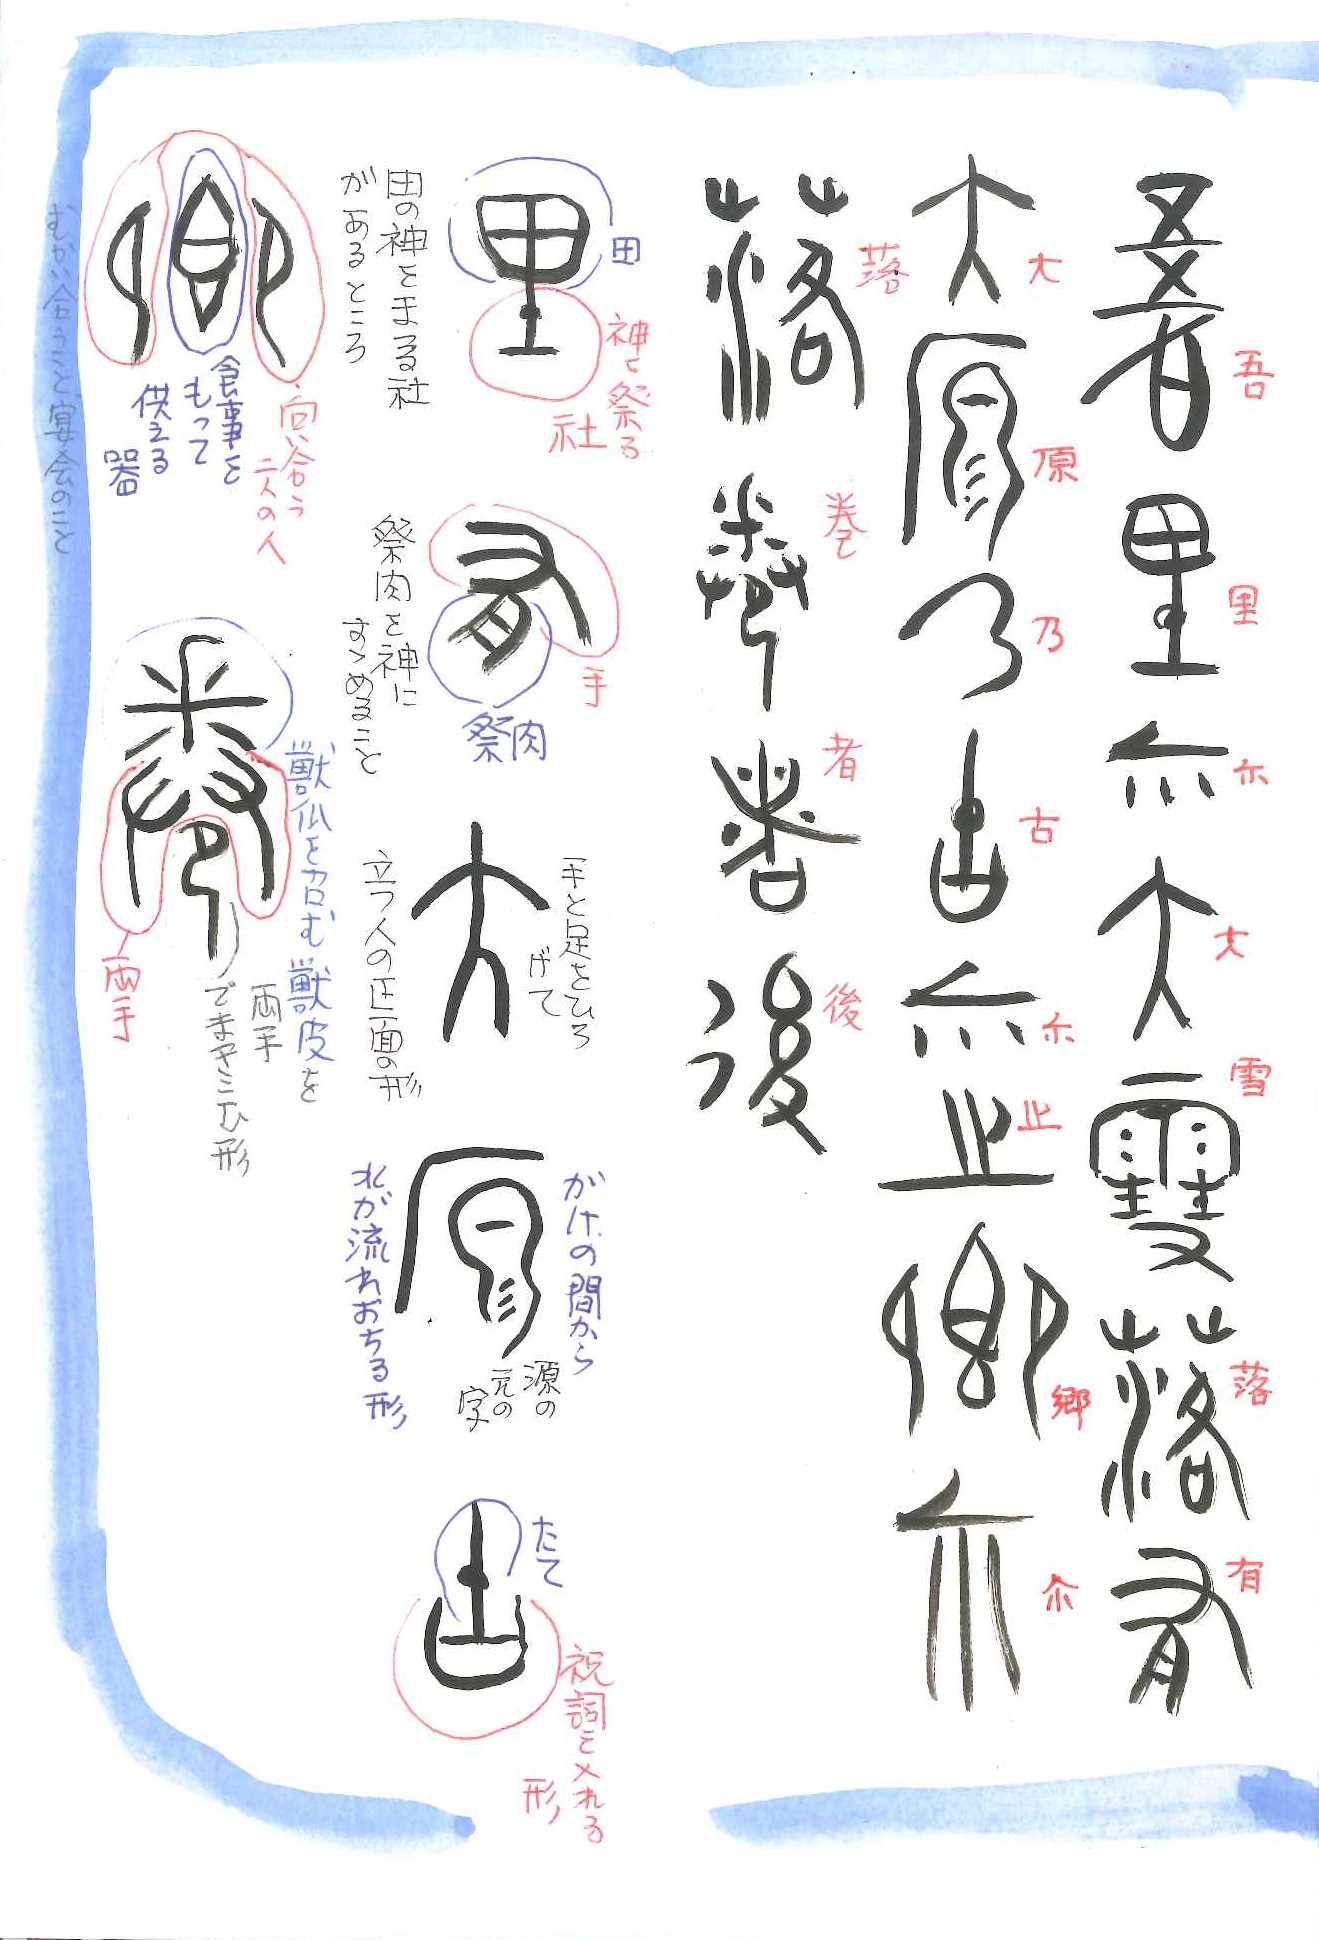 吾里尓大雪落有
大原乃古尓止郷尓
落巻者後
里
田
神を祭る
社
田の神をまる社
があるところ
有
手
祭肉
祭肉を神に
すゝめること
大
手と足をひろ
げて
立つ人の正面の形
原
がけの間から
水が流れおちる形
源の
元の
字
古
たて
祝詞を入れる
形
郷
向い合う
二人の人
食事を
もって
供える
器
むかい合うこと宴会のこと
巻
獣爪を含む獣皮を
両手
でまきこむ形
両手